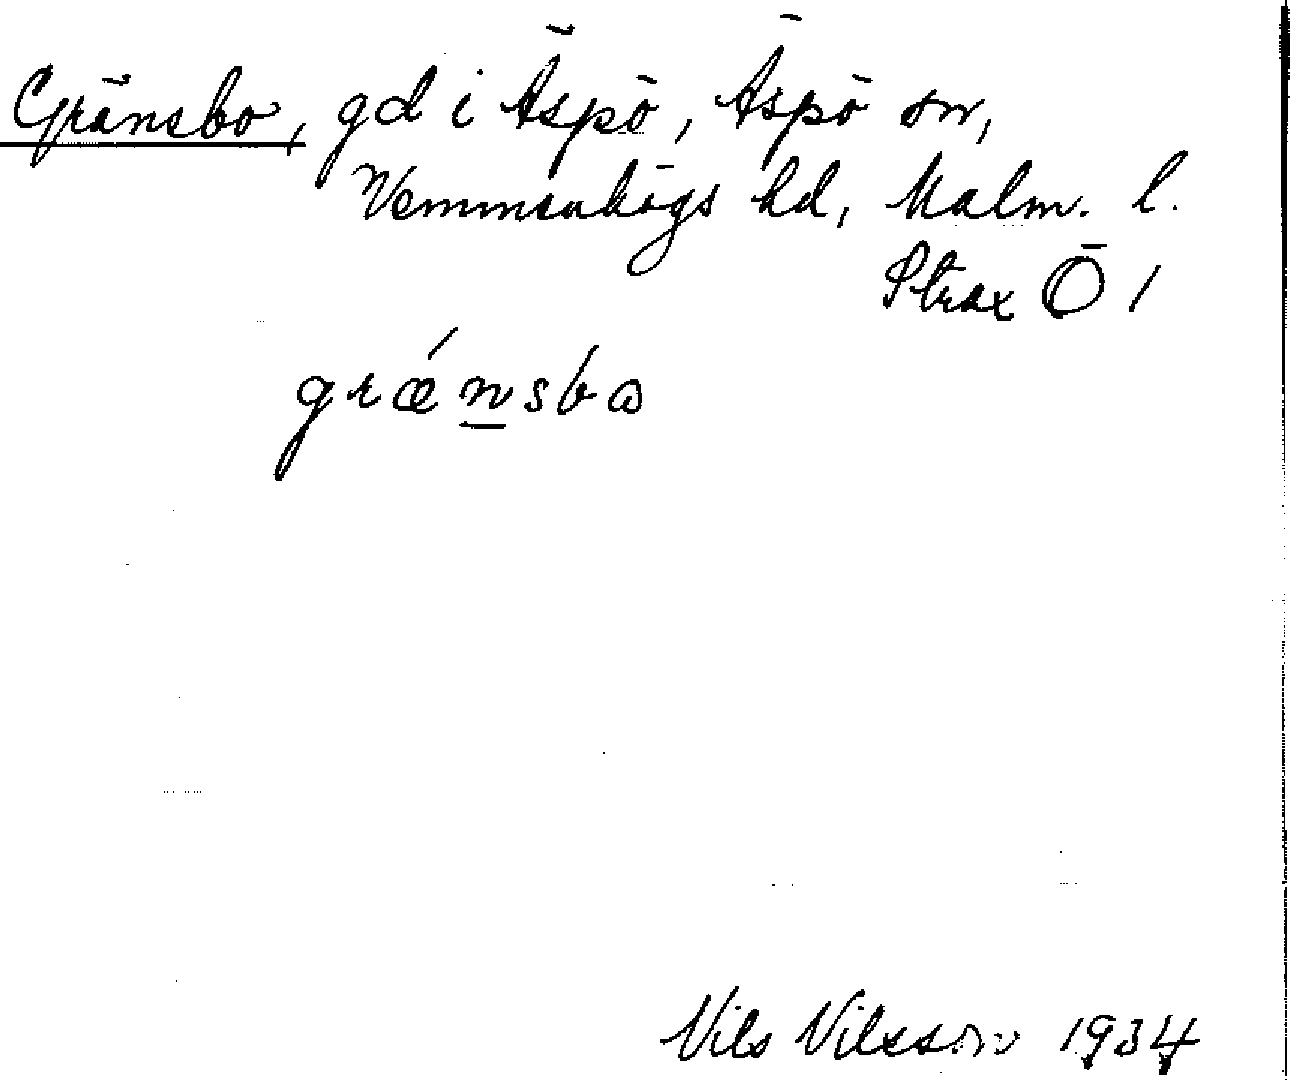 Gränsbo, gd i Äspö, Äspö sn,
Vemmenhögs hd, Malm. l.
Strax Ö 1
grǽnsbo
Nils Nilsson 1934